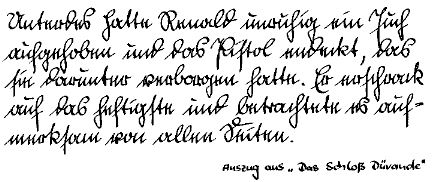 Unterdes hatte Renald unruhig ein Tuch
aufgehoben und das Pistol endeckt, das
sie darunter verborgen hatte. Er erschrack
auf das heftigste und betrachtete es auf-
merksam von allen Seiten.
Auszug aus „Das Schloß Dürande“